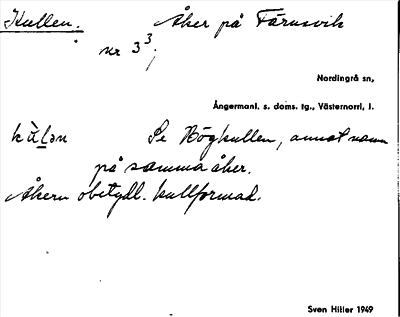 Kullen. Åker på Färnsvik
nr 3³;
Nordingrå sn,
Ångermanl. s. doms. tg., Västernorrl, l.
kùlən Se Högkullen, annat namn
på samma åker.
Åkern obetydl. kullformad.
Sven Hiller 1949